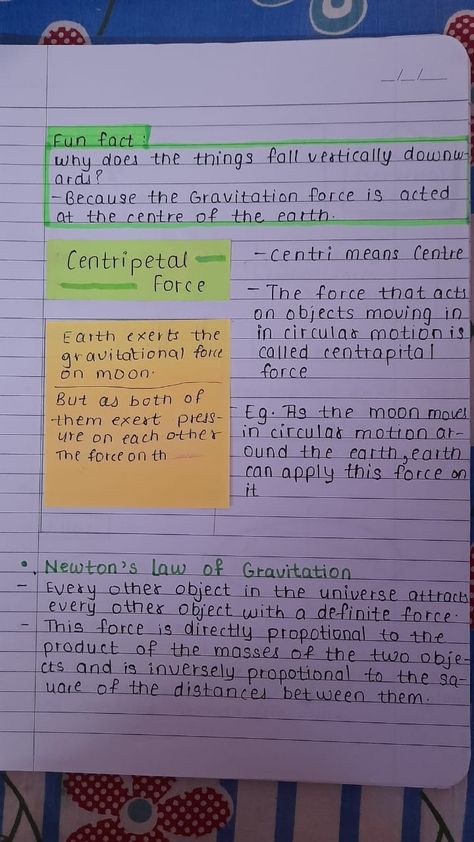 Fun fact :
Why does the things fall vertically downw-
ards?
- Because the Gravitation force is acted
at the centre of the earth.
Centripetal
Force
- Centri means Centre
- The force that acts
on objects moving in
in circular motion is
called centrapital
force
Eg. As the moon moves
in circular motion ar-
ound the earth, earth
can apply this force on
it
Earth exerts the
gravitational force
on moon.
But as both of
them exert press-
ure on each other
The force on th
Newton's Law of Gravitation
- Every other object in the universe attracts
every other object with a definite force.
- This force is directly propotional to the
product of the masses of the two obje-
cts and is inversely propotional to the sq-
uare of the distances between them.